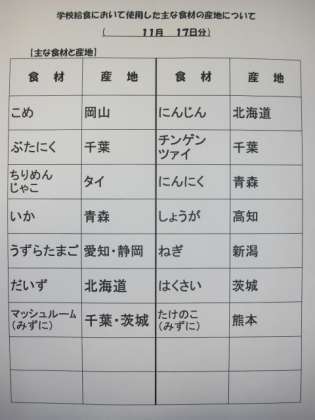 学校給食において使用した主な食材の産地について
( 11月 17日分)
【主な食材と産地】
食 材 産 地 食 材 産 地
こめ 岡山 にんじん 北海道
ぶたにく 千葉 チンゲンツァイ 千葉
ちりめんじゃこ タイ にんにく 青森
いか 青森 しょうが 高知
うずらたまご 愛知・静岡 ねぎ 新潟
だいず 北海道 はくさい 茨城
マッシュルーム(みずに) 千葉・茨城 たけのこ(みずに) 熊本